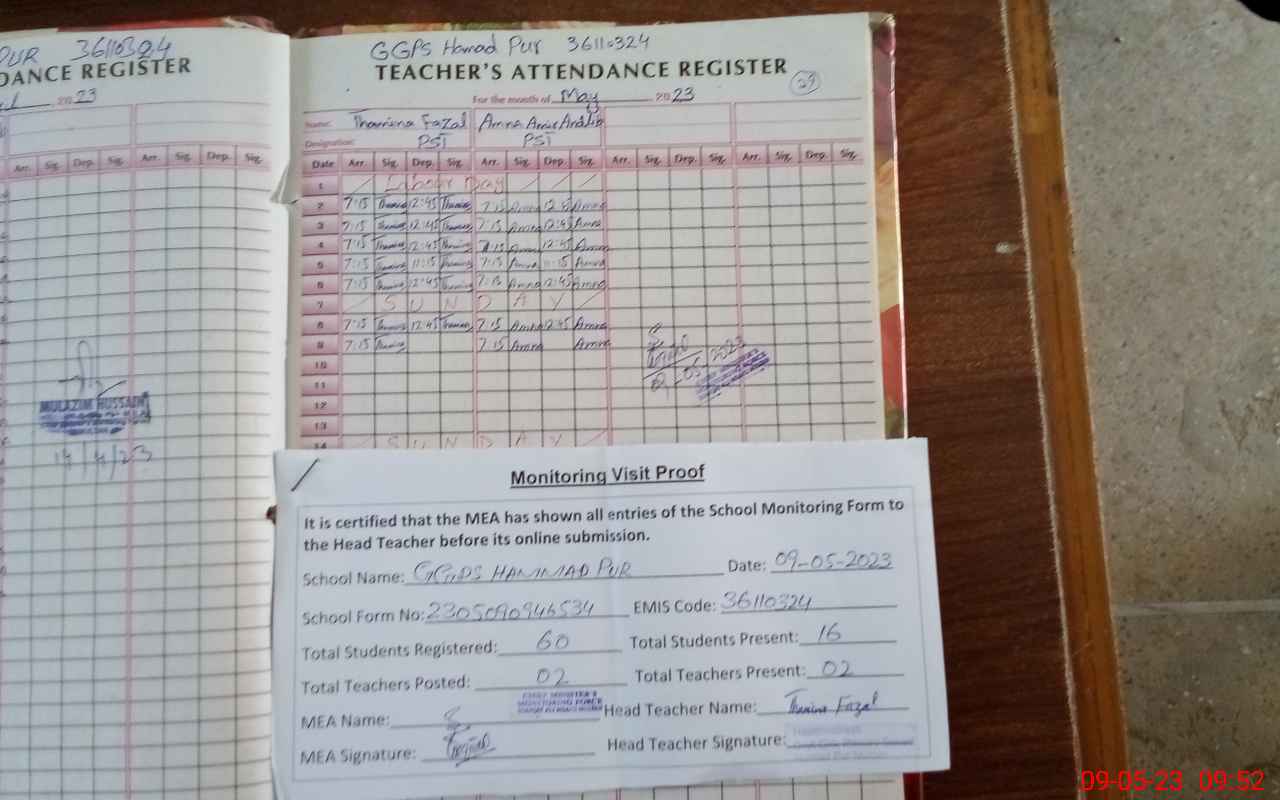 PUR 36110324
DANCE REGISTER
20 23
Arr. Sig. Dep. Sig. Arr. Sig. Dep. Sig.
MULAZIM HUSSAIN
GGPS Hamad Pur 36110324
TEACHER'S ATTENDANCE REGISTER
29
For the month of May 20 23
Name: Thamina Fazal Amna
Designation: PST PST
Date Arr. Sig. Dep. Sig. Arr. Sig. Dep. Sig. Arr. Sig. Dep. Sig. Arr. Sig. Dep. Sig.
1 Labour Day
2 7:15 Thamina 12:45 Thamina 7:15 Amna 12:45 Amna
3 7:15 Thamina 12:45 Thamina 7:15 Amna 12:45 Amna
4 7:15 Thamina 12:45 Thamina 7:15 Amna 12:45 Amna
5 7:15 Thamina 11:15 Thamina 7:15 Amna 11:15 Amna
6 7:15 Thamina 12:45 Thamina 7:15 Amna 12:45 Amna
7 SUNDAY
8 7:15 Thamina 12:45 Thamina 7:15 Amna 12:45 Amna
9 7:15 Thamina 7:15 Amna Amna
10
11
12
13
14 SUNDAY
Monitoring Visit Proof
It is certified that the MEA has shown all entries of the School Monitoring Form to
the Head Teacher before its online submission.
School Name: GGPS HAMMAD PUR Date: 09-05-2023
School Form No: 2305090946534 EMIS Code: 36110324
Total Students Registered: 60 Total Students Present: 16
Total Teachers Posted: 02 Total Teachers Present: 02
CHIEF MINISTER'S
MONITORING FORCE
MEA Name: Head Teacher Name: Thamina Fazal
MEA Signature: Head Teacher Signature:
09-05-23 09:52